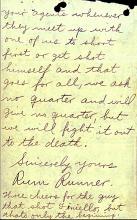 your agents whenever
they meet up with
one of us to shoot
first or get shot
himself and that
goes for all, we ask
no quarter and will
give no quarter, but
we will fight it out
to the death.
Sincerely yours
Rum Runner.
Three cheers for the guy
that shot
shots only the beginning